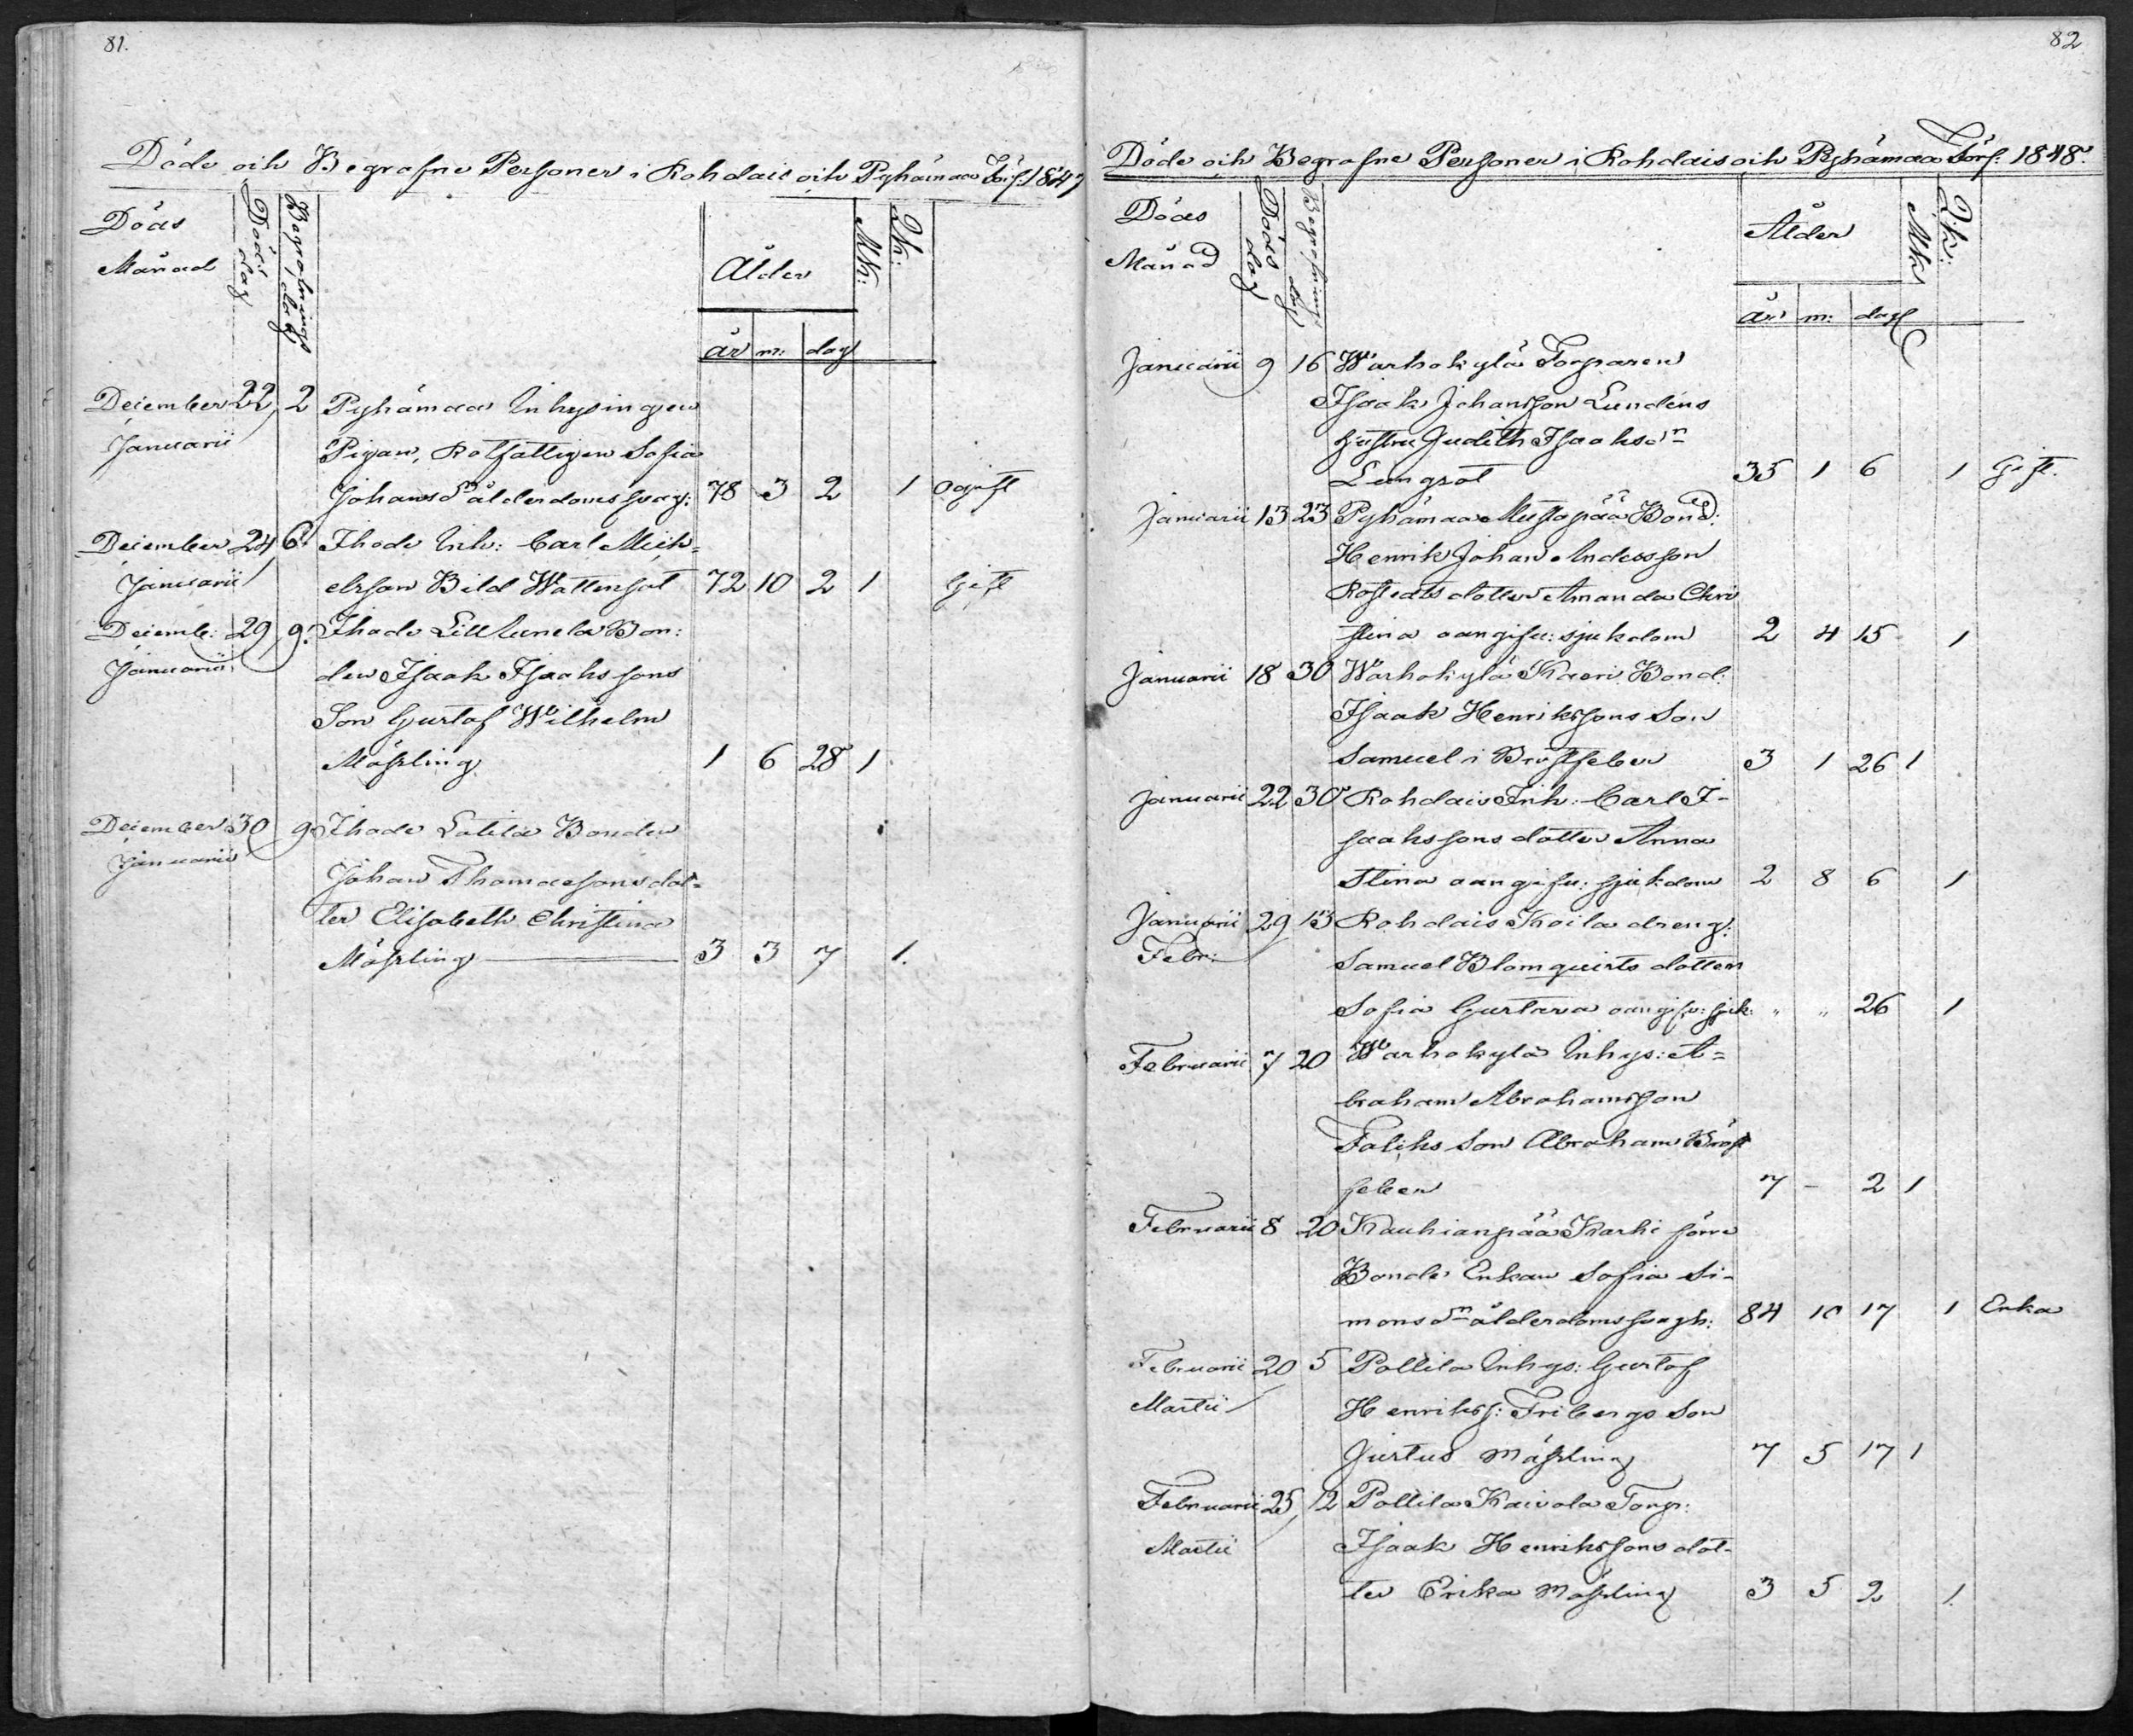 81.
Döde och Begrafne Personer i Rohdais och Pyhämaa Förs: 1847
Döds Månad
Döds dag
Begrafnings dag
Ålder
år m: dag
Mk:
Qk:
December 22 2 Pyhämaa Inhysingen
Januarii Pigan, Rotfattigen Sofia
Johansdn ålderdomssvag: 78 3 2 1 ogift
December 24 6 Ihode Inh: Carl Mich=
Januarii elsson Bild Wattensot 72 10 2 1 Gift
Decemb: 29 9 Ihode Lill Bon:
Januarii den Isaak Isaakssons
Son Gustaf Wilhelm
Mässling 1 6 28 1
December 30 9 Ihode Bonden
Januarii Johan Thomassons dot=
ter Elisabeth Christina
Mässling 3 3 7 1.
82
Döde och Begrafne Personer i Rohdais och Pyhämaa Förs: 1848.
Döds Månad
Döds dag
Begrafnings dag
Ålder
år m: dag
Mk
Qk:
Januarii 9 16 Warhokylä Torparen
Isaak Johansson Lundéns
hustru Judith Isaaksdn
Lungsot 35 1 6 1 Gift.
Januarii 13 23 Pyhämaa Mustapää Bond:
Henrik Johan Andersson
Rostedts dotter Amanda Chri
stina oangifv: sjukdom 2 4 15 1
Januarii 18 30 Warhokylä Kaeri Bond:
Isaak Henrikssons Son
Samuel i Bröstfeber 3 1 26 1
Januarii 22 30 Rohdais Inh: Carl I-
saakssons dotter Anna
Stina oangifv: sjukdom 2 8 6 1
Januarii 29 13 Rohdais Koila dreng:
Febr: Samuel Blomquists dotter
Sofia Gustava oangifv: sjuk: " " 26 1
Februarii 7 20 Warhokylä Inhys: A=
braham Abrahamsson
Faliks Son Abraham Bröst
feber 7 - 2 1
Februarii 8 20 Kauhianpää Karhi förra
Bonde Enkan Sofia Si-
monsdn ålderdomssvagh: 84 10 17 1 Enka
Februarii 20 5 Pollila Inhys: Gustaf
Martii Henrikss: Fribergs Son
Justus Mässling 7 5 17 1
Februarii 25 12 Pollila Kaivola Torp:
Martii Isaak Henrikssons dot-
ter Erika Mässling 3 5 2 1.